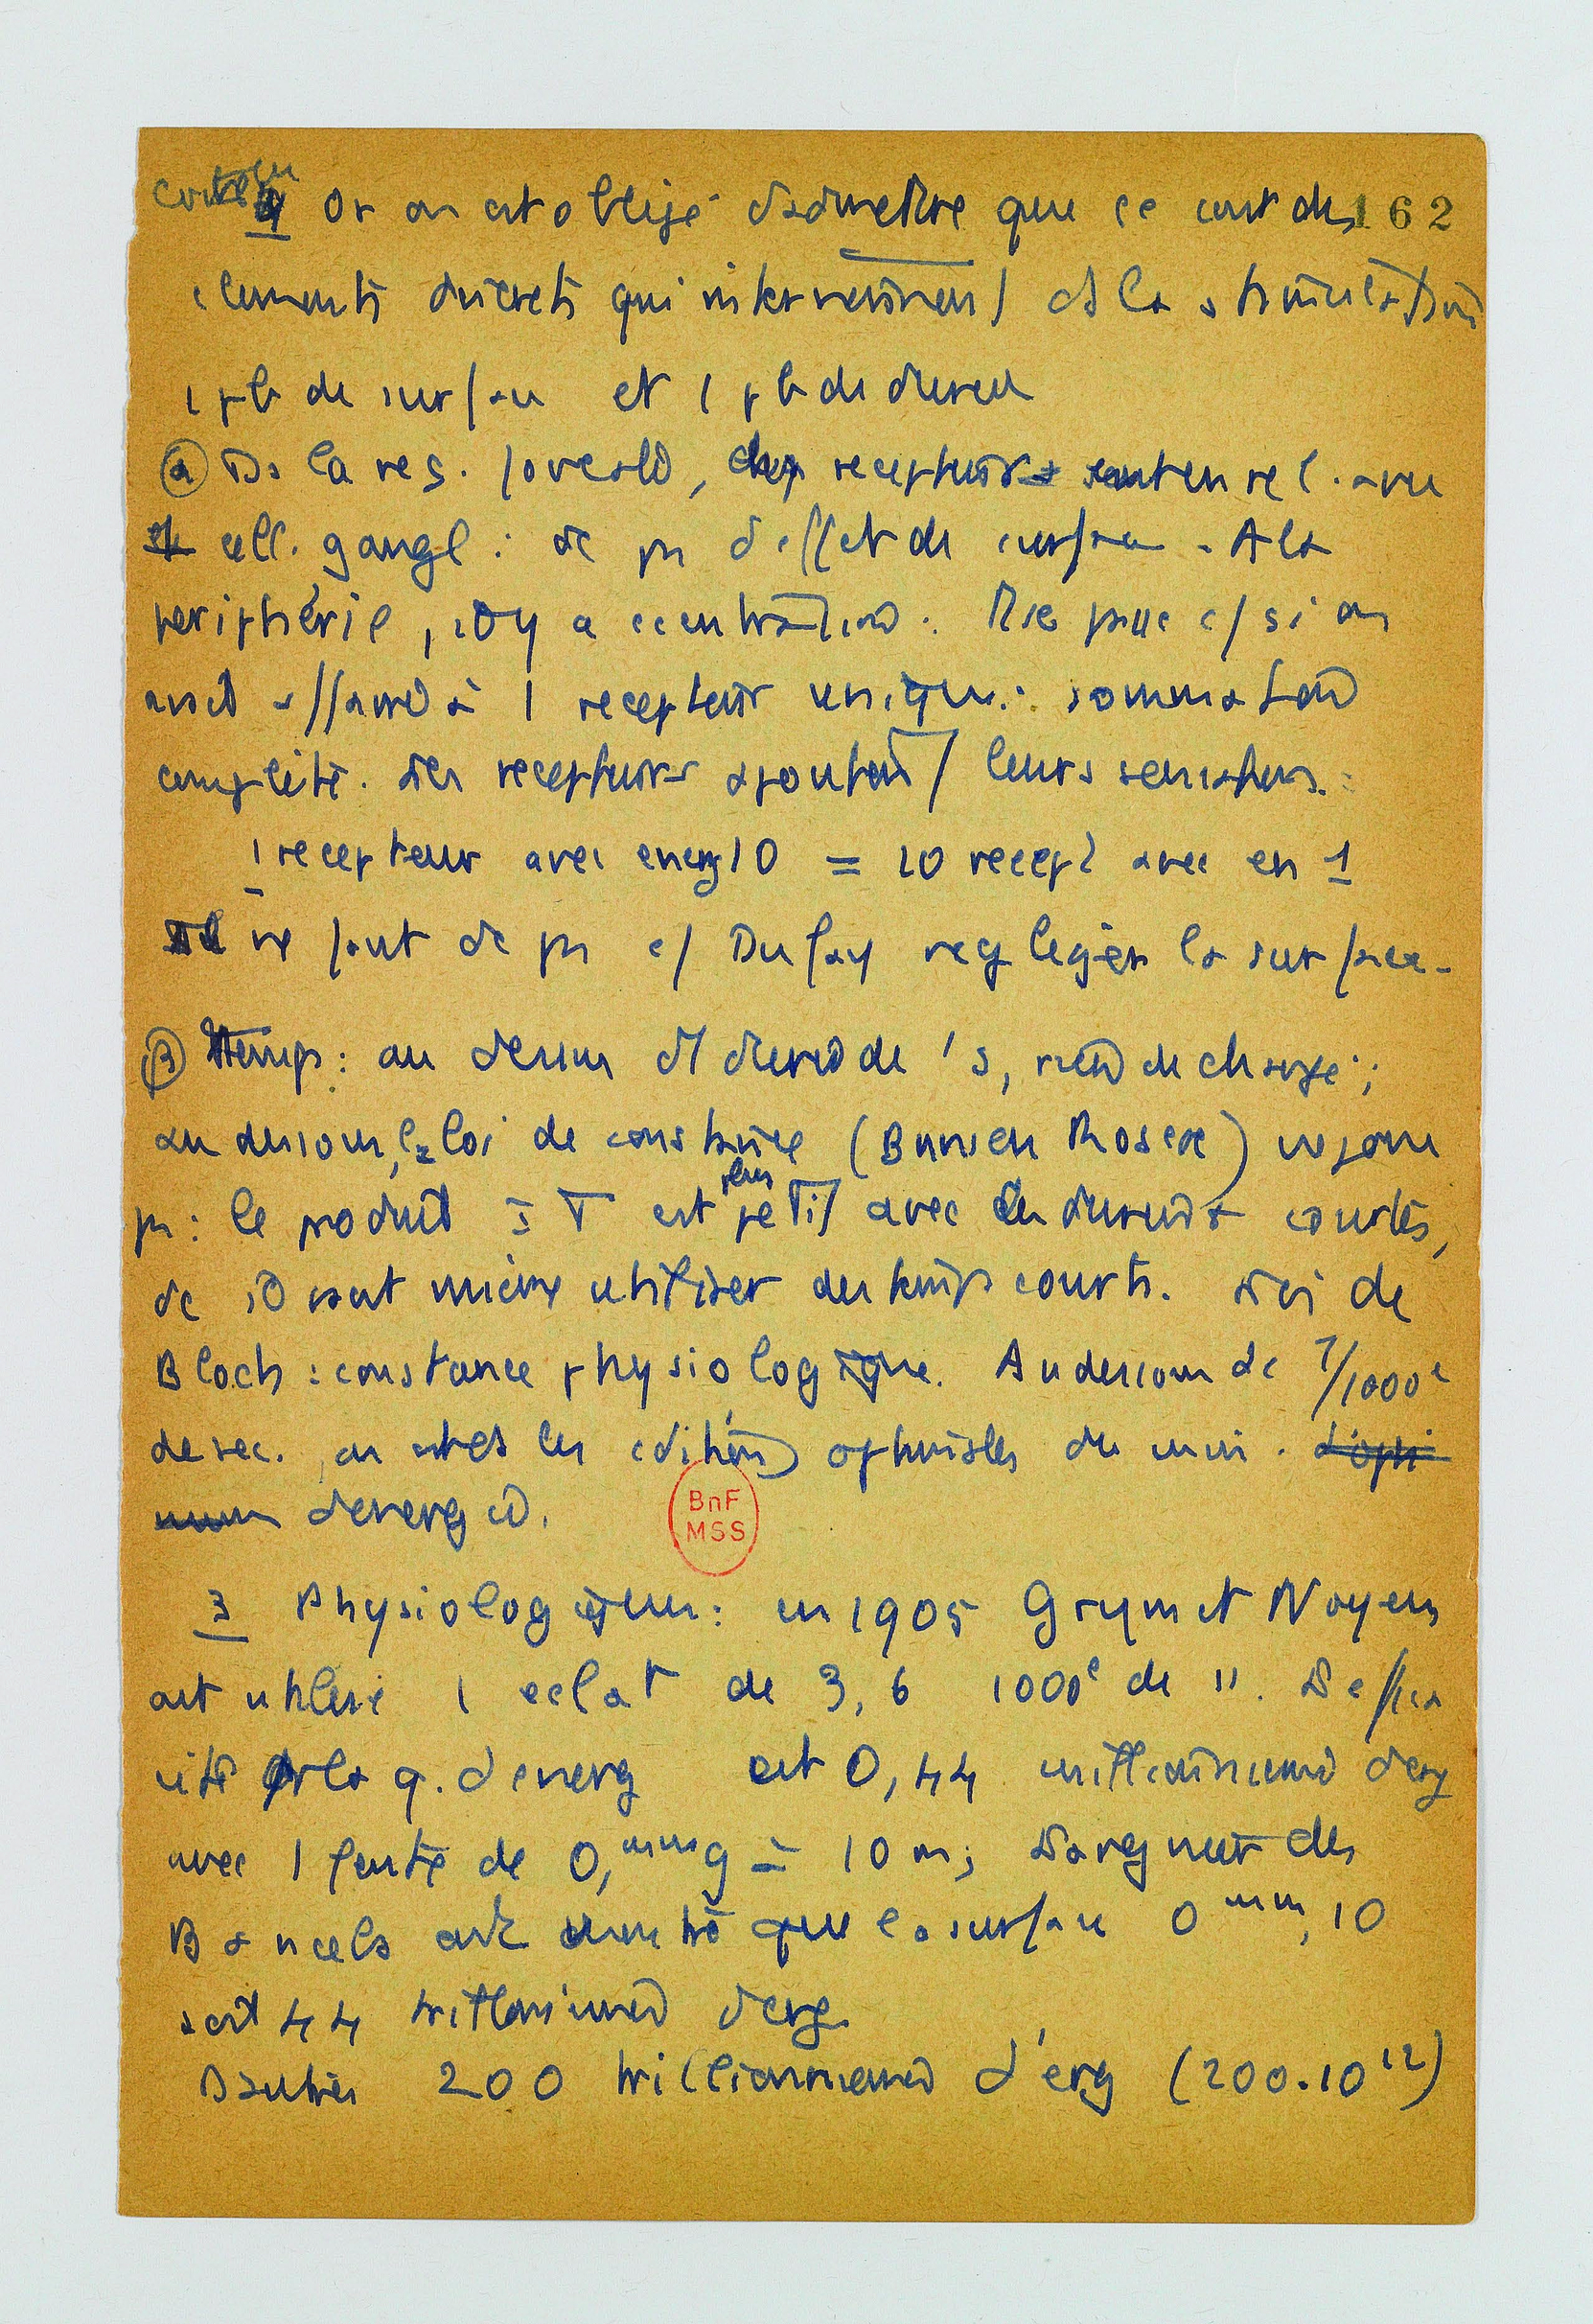 4 Or on est obligé d'admettre que ce sont des 162
elements discrets qui interviennent ds la stimulation
1 pb de surface et 1 pb de durée
(α) Ds la reg. foveale, chq recepteur est en rel. avec
1 cell. gangl : dc pas d'effet de surface. A la
peripherie, il y a
avait affaire à 1 recepteur unique : sommation
complète. Les recepteurs ajoutent leurs sensations :
1 recepteur avec energ 10 = 10 recept avec en 1
Il ne faut dc pas c/ Dufay negleger la surface.
(β) Temps : au dessus d'1 durée de 1 s, rien de changé ;
au dessous, la loi de constance (Bunsen Roscoe) ne joue
pas : le produit I T est plus petit avec les durées courtes,
dc il vaut mieux utiliser des temps courts. Loi de
Bloch : constance physiologique. Au dessous de 7/1000e
de sec. on est ds les conditions optimales du
d'energie.
3 Physiologique : en 1905 Grijns et Noyons
ont utilisé 1 eclat de 3,6 1000e de ". L'effica
cité pr la q. d'energ est 0,44 d'erg
avec 1 fente de 0,mm 9 à 10 m ; Larguier des
Bancels ont montré que la surface 0 mm,10
soit 44 trillionieme d'erg
D'autres 200 trillionnieme d'erg (200.10 12)
BnF
MSS